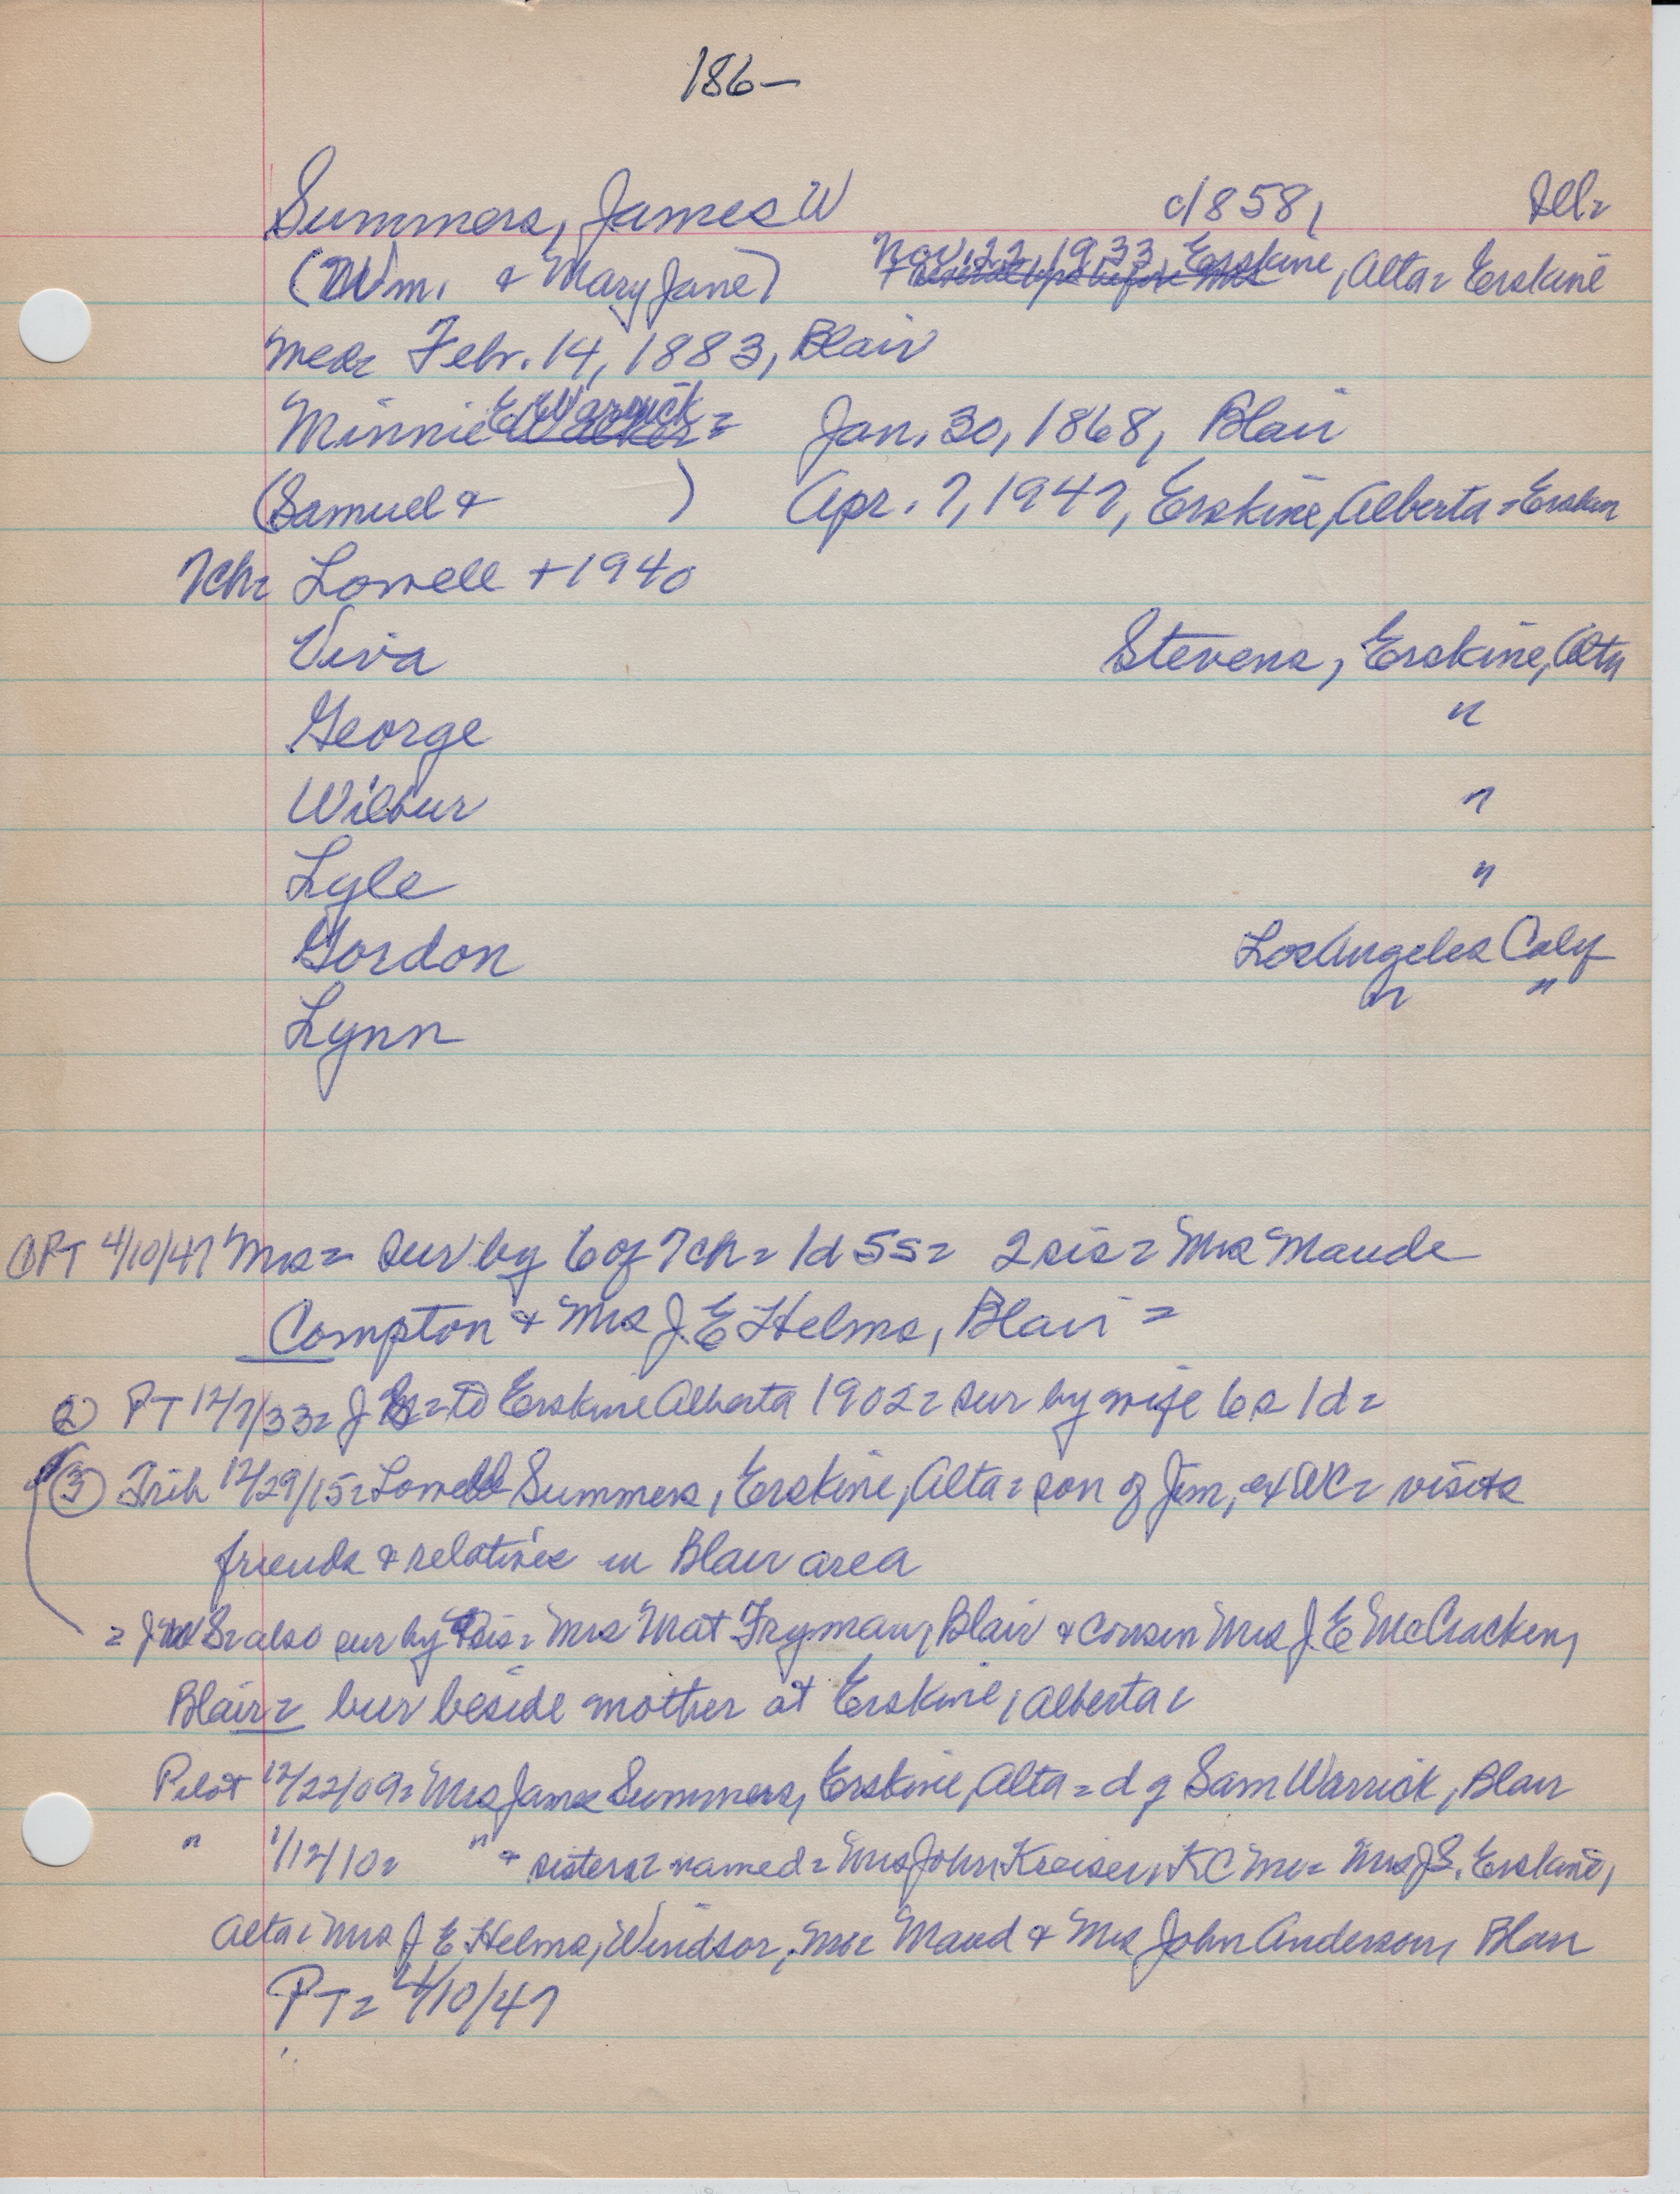 186-
Summers, James W c1858, Ill=
(Wm. & Mary Jane) Nov. 22, 1933, Erskine, Alta= Erskine
med= Febr. 14, 1883, Blair
Minnie E Warrick= Jan. 30, 1868, Blair
(Samuel & ) Apr. 7, 1947, Erskine, Alberta=Erskin
7ch= Lowell +1940
Viva Stevens, Erskine, Alta
George "
Wilbur "
Lyle "
Gordon Los Angeles Calif
Lynn " "
PT 4/10/47 Mrs= sur by 6 of 7ch= 1d 5s= 2 sis= Mrs Maude
Compton & Mrs J. E Helms, Blair=
② PT 12/7/33= J S= to Erskine Alberta 1902= sur by wife 6s 1d=
③ Trib 12/29/15= Lowell Summers, Erskine, Alta= son of Jim, ex WC= visits
friends & relatives in Blair area
= JW Sr also sur by sis= Mrs Mat Fryman, Blair & cousin Mrs J. E McCracken,
Blair= bur beside mother at Erskine, Alberta=
Pilot 12/22/09= Mrs James Summers, Erskine, Alta= d of Sam Warrick, Blair
" 1/12/10= " & sisters= named= Mrs John Kreiser, KC Mo= Mrs J S. Erskine,
Alta= Mrs J E Helms, Windsor, Mo= Maud & Mrs John Anderson, Blair
PT= 4/10/47